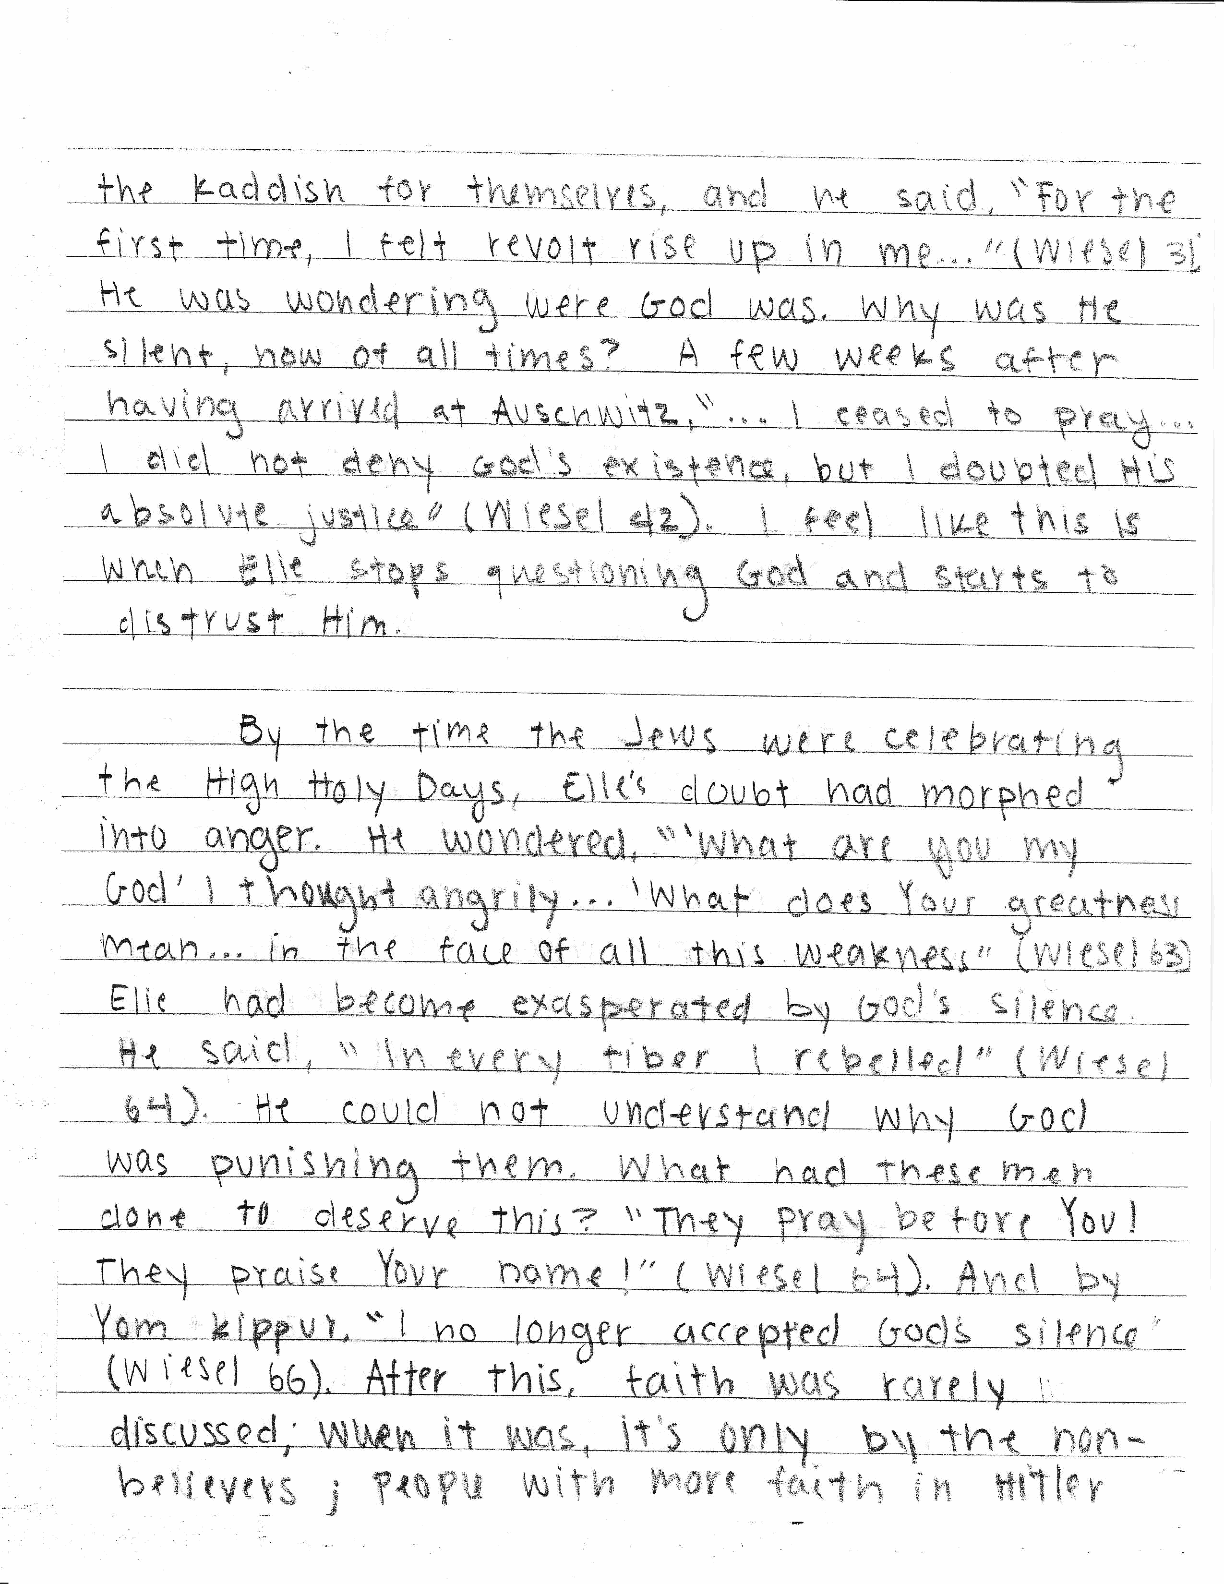 the kaddish for themselves, and he said, "For the
first time, I felt revolt rise up in me..."(Wiesel 31
He was wondering were God was. Why was He
silent, now of all times? A few weeks after
having arrived at Auschwitz, "... I ceased to pray...
I did not deny God's existence, but I doubted His
absolute justice" (Wiesel 42). I feel like this is
when Elie stops questioning God and starts to
distrust Him.
By the time the Jews were celebrating
the High Holy Days, Elie's doubt had morphed
into anger. He wondered, "'What are you my
God' I thought angrily... 'What does Your greatness
mean... in the face of all this weakness" (Wiesel 63)
Elie had become exasperated by God's silence.
He said, "In every fiber I rebelled" (Wiesel
64). He could not understand why God
was punishing them. What had these men
done to deserve this? "They pray before You!
They praise Your name!" (Wiesel 64). And by
Yom kippur, "I no longer accepted God's silence"
(Wiesel 66). After this, faith was rarely
discussed; when it was, it's only by the non-
believers; people with more faith in Hitler